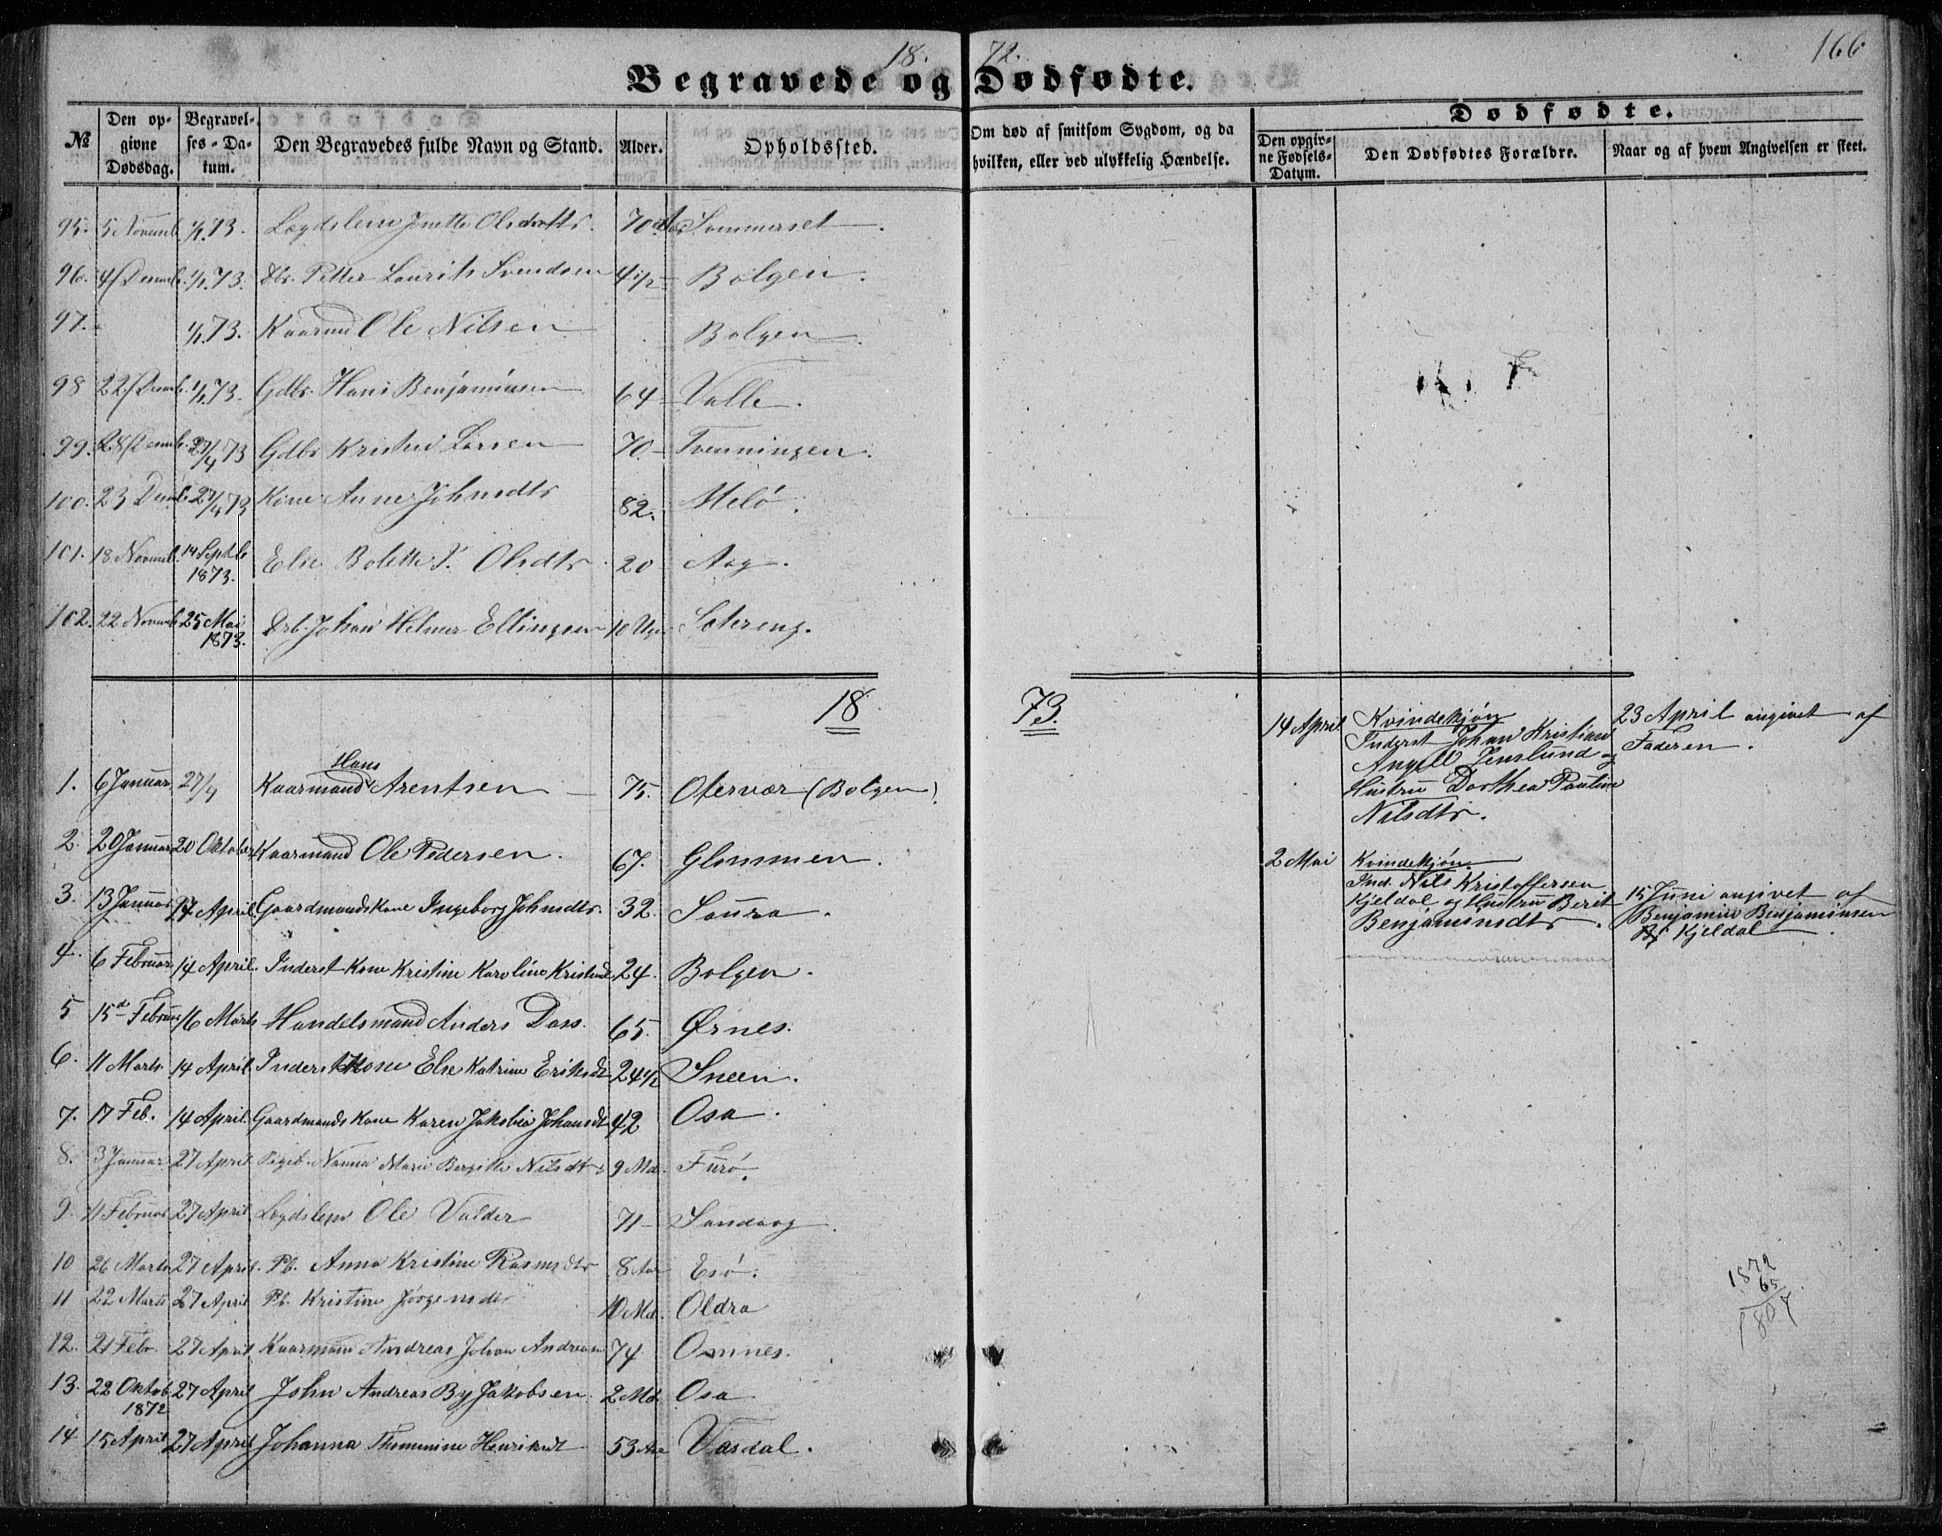 18. 72. 166
Begravede og Dødfødte.
№
Den opgivne Dødsdag.
Begravelses-Datum.
Den Begravedes fulde Navn og Stand.
Alder.
Opholdssted.
Om død af smitsom Sygdom, og da hvilken, eller ved ulykkelig Hændelse.
Dødfødte.
Den opgivne Fødsels-Datum.
Den Dødfødtes Forældre.
Naar og af hvem Angivelsen er skeet.
95. 5 Novemb. 1/1.73. Lægdslem Jenette Olsdatter. 70 Aar Sommerset.
96. 4/Decemb. 1/1.73. Petter Laurits Svendsen 4 1/2 Bolgen.
97. - 1/1.73. Kaarmd Ole Nilsen Bolgen.
98 22/Decemb. 1/1.73. Gdbr. Hans Benjaminsen 64 Valle.
99. 28/Decemb. 27/4 73 Gdbr Kristen Larsen 70 Tvenningen.
100. 23 Decmb. 27/4 73 Kone Anne Johnsdtr 82. Melö.
101. 18 Novemb. 14 Septb 1873. Else Bolette Olsdtr. 20 Aag.
102. 22 Novemb. 25 Mai 1873. Drb. Johan Helmer Ellingsen 10 Uger Setereng.
18 73.
14 April Kvindekjøn
Inderst Johan Kristian
Angell Jenslund og
Hustru Dorthea Pauline
Nilsdtr.
23 April angivet af
Faderen.
1. 6 Januar. 27/4 Kaarmand Hans Arentsen 75. Otervær (Bolgen).
2. 20 Januar 20 Oktober Kaarmand Ole Pedersen. 67. Glommen.
2 Mai Kvindekjøn
Ind. Nils Kristoffersen
Kjeldal og Hustru Berit
Benjaminsdtr.
15 Juni angivet af
Benjamin Benjaminsen
Kjeldal.
3. 13 Januar 17 April Gaardmands Kone Ingeborg Johnsdtr. 32. Saura.
4. 6 Februar 14 April. Inderst Kone Kristine Karoline Kristensd 24. Bolgen.
5 15d Februar 16 Marts Handelsmand Anders Dass. 65. Ørnes.
6. 11 Marts. 14 April. Inderst Kone Else Katrine Eriksdt 24 1/2 Sneen.
7. 17 Feb. 14 April. Gaardmands Kone Karen Jakobia Johansdt 42 Osa.
8. 3 Januar. 27 April Pigeb. Nanna Marie Bergitte Nilsdtr 9 Md. Furö.
9. 11 Februar 27 April. Lægdslem Ole Valder 71 Sandaag
10 26 Marts 27 April. Pb. Anna Kristine Rasmsdtr 8 Aar Esö.
11 22 Marts 27 April Pb. Kristine Jörgensdtr 10 Md. Oldra
12. 21 Febr. 27 April Kaarmand Andreas Johan Andreasen 74 Omnes.
13. 22 Oktob. 1872 27 April John Andreas By Jakobsen. 2 Md. Osa
14 15 April 27 April Johanna Thommine Henriksdt 53 Aar Vasdal.
1872
65
1807